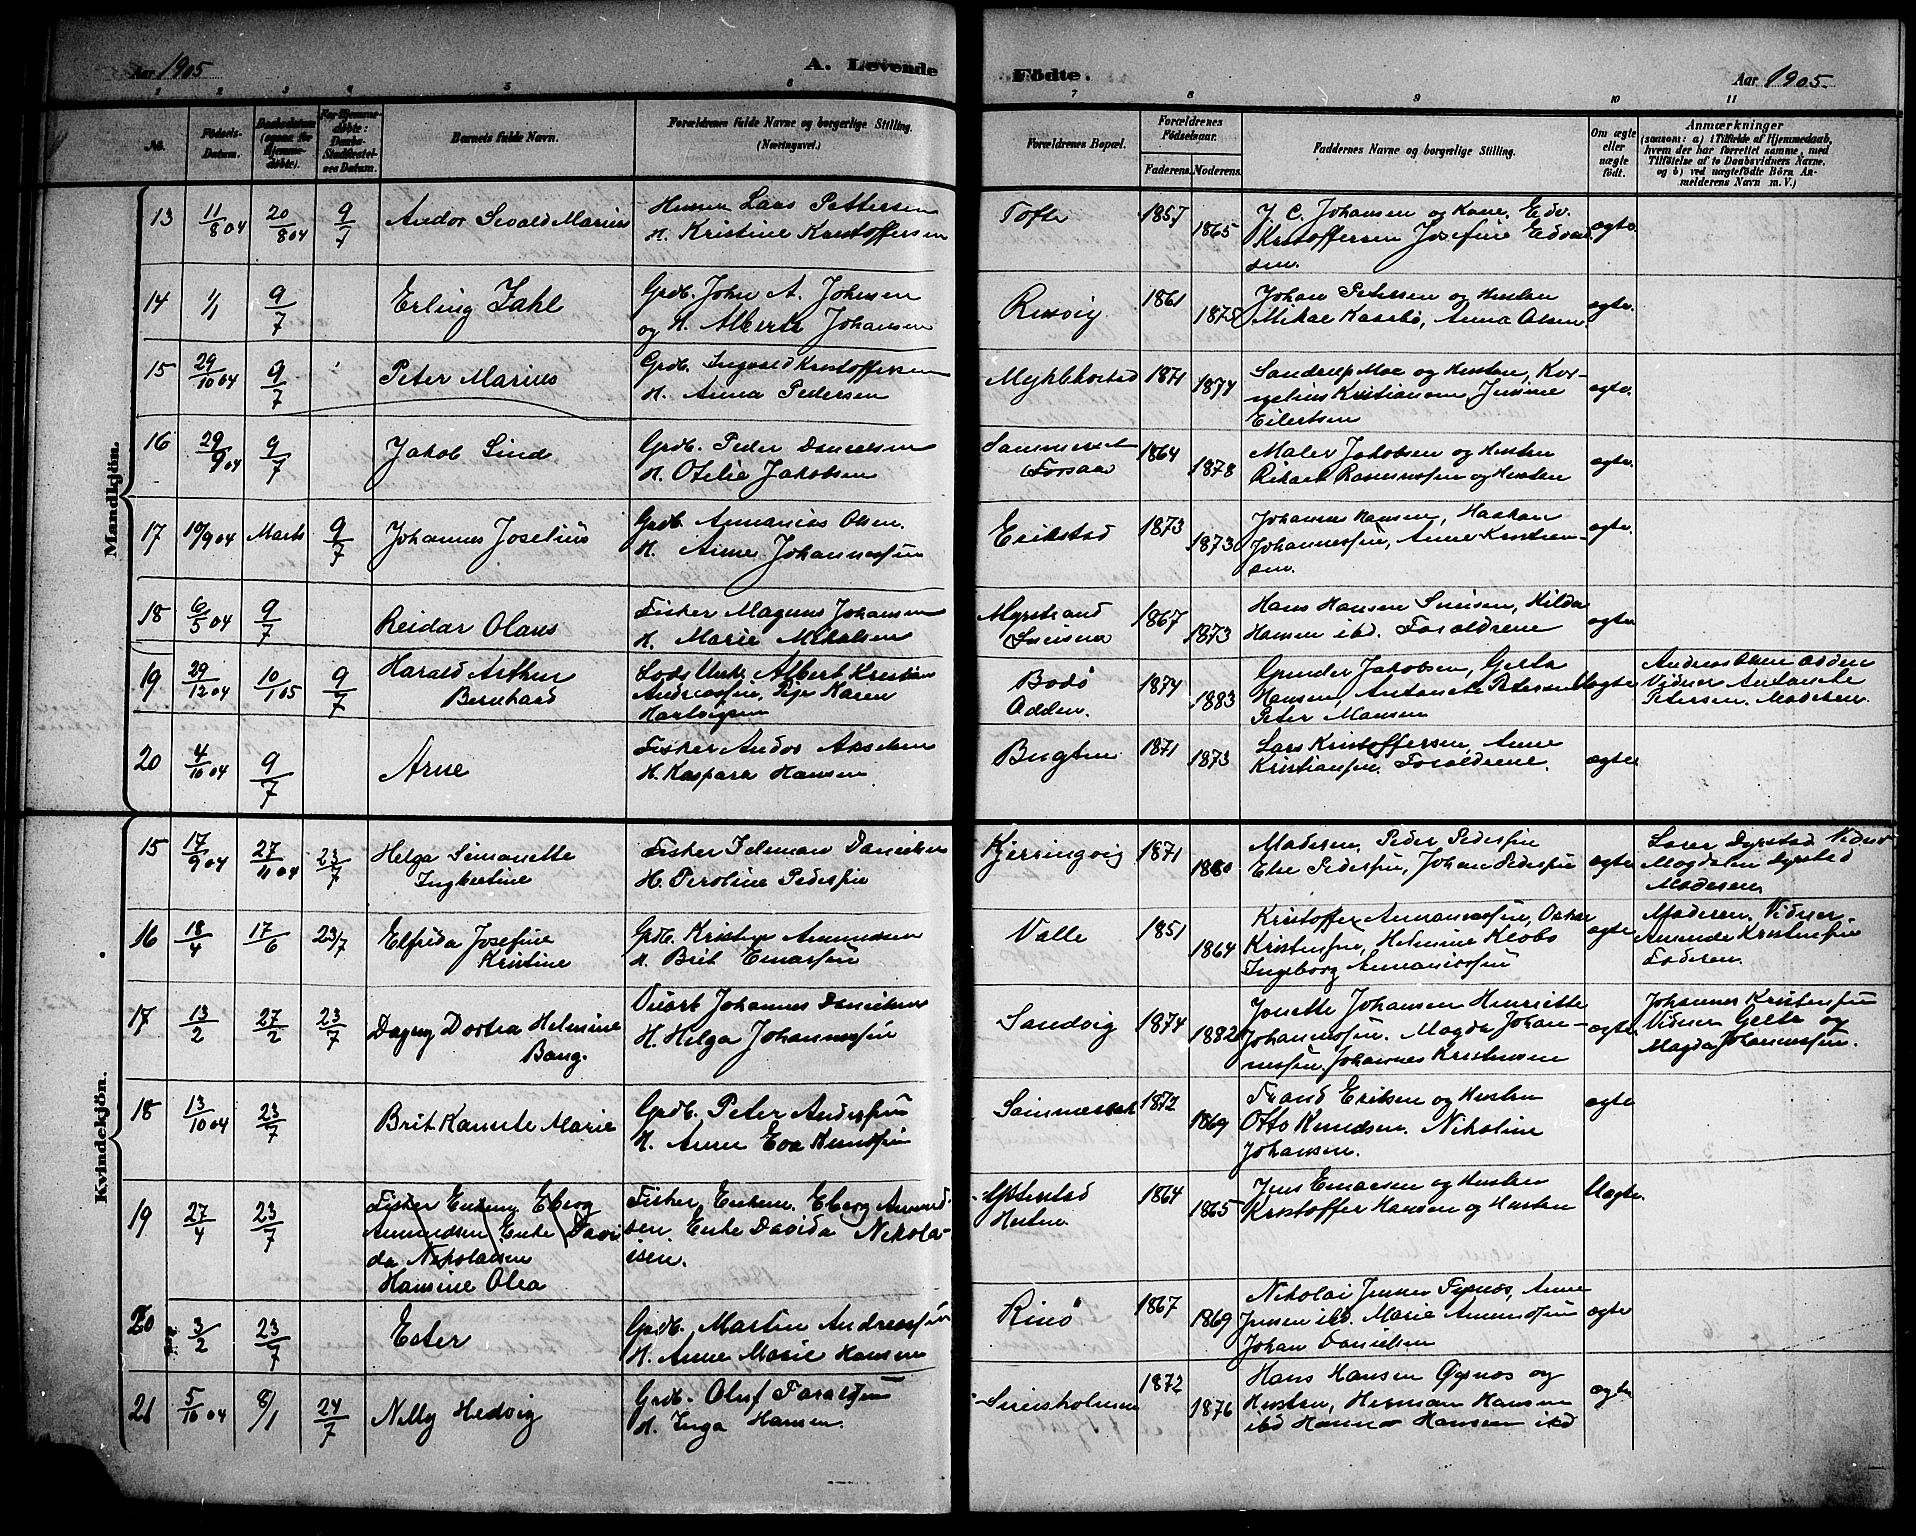 Aar 1905
A. Levende
Födte.
Aar 1905.
1 2 3 4 5 6 7 8 9 10 11
No.
Födsels-Datum.
Daabsdatum (ogsaa for Hjemmedöbte).
For Hjemmedöbte: Daabs-Stadfæstelses Datum.
Barnets fulde Navn.
Forældrenes fulde Navne og borgerlige Stilling.
(Næringsvei.)
Forældrenes Bopæl.
Forældrenes Födselsaar.
Faderens. Moderens.
Faddernes Navne og borgerlige Stilling.
Om ægte eller uægte födt.
Anmærkninger
(saasom: a) i Tilfælde af Hjemmedaab,
hvem der har forrettet samme, med
Tilföielse af to Daabsvidners Navne,
og b) ved uægtefödte Börn An-
melderens Navn m. V.)
Mandkjön.
13 11/8 04 20/8 04 9/7 Andor Sevald Marius
Lars Pettersen
H. Kristine Kristoffersen
Tofte 1857 1865
J. C. Johansen og Kone, Edv.
Kristoffersen Josefine Edvard
sen.
ægte
14 1/1 9/7 Erling Zahl
Grdb. John A. Johnsen
og H. Alberte Johansen
1861 1875
Johan Petersen og Hustru
Mikal Kaasebø, Anna Olsen
ægte
15 29/10 04 9/7 Peter Marius
Grdb. Ingvald Kristoffersen
H. Anna Pedersen
Myklebostad 1871 1874
Moe og Hustru, Kor-
nelius Kristiansen
Eilertsen
ægte
16 29/9 04 9/7 Jakob Lind
Grdb. Peder Danielsen
H. Otelie Jakobsen
Forsaa 1864 1878
Maler Jakobsen og Hustru
Rikart Rasmussen og Hustru
ægte
17 10/9 04 Marts 9/7 Johannes Joselius
Grdb. Annanias Olsen.
H. Anne Johannessen
Erikstad 1873 1873
Johannes Hansen, Haakon
Johannessen, Anne Kristian-
sen.
ægte
18 6/5 04 9/7 Reidar Olaus
Fisker Magnus Johansen
H. Marie Mikalsen
Myrstrand 1867 1873
Hans Hansen, Hilda
Hansen ibd. Forældrene
ægte
19 29/12 04 10/1 05 9/7 Harald Arthur
Bernhard
Albert Kristian
Andreassen, Pige Karen
Hartvigsen
Bodø
Odden. 1874 1883
Gunder Jakobsen, Gerta
Hansen, Antonete Petersen
Peter Hansen
uægte
Andreas Olsen Odden
Vidner Antonete
Petersen. Moderen.
20 4/10 04 9/7 Arne
Fisker Andor Akselsen
H. Kaspara Hansen
Bugten 1871 1873
Lars Kristoffersen, Anne
Kristiansen. Forældrene.
ægte
Kvindekjön.
15 17/9 04 27/11 04 23/7 Helga Simonette
Ingbertine
Fisker Edeman Danielsen
H. Peroline Pedersen
Kjerringvig 1871 1880
Moderen, Peder Pedersen
Else Pedersen, Johan Pedersen
ægte
Dyrstad Vidner
Magdalen Dyrstad
Moderen
16 18/4 17/6 23/7 Elfrida Josefine
Kristine
Grdb. Kristen Amundsen
H. Brit Einarsen
Valle 1851 1864
Kristoffer Annaniassen, Oskar
Kristensen, Helmine Klobo
Ingeborg Annaniassen
ægte
Moderen. Vidner.
Amanda Kristensen
Faderen.
17 13/2 27/2 23/7 Dagny Dortea Helmine
Bang.
Johannes Danielsen
H. Helga Johannessen
Sandvig 1874 1882
Jonette Johansen Henriette
Johannessen. Magda Johan-
nessen, Johannes Kristensen
ægte
Johannes Kristensen
Vidner Gerta og
Magda Johannessen.
18 13/10 04 23/7 Brit Kannute Marie
Grdb. Peter Andersen
H. Anne Eva Knudsen
Sommerset 1872 1869
Trond Eriksen og Hustru
Otto Knudsen. Nikoline
Johansen.
ægte
19 27/4 23/7 Fisker Enkem. Eberg
Amundsen Enke Davi
da Nikolaisen
Hansine Olea
Fisker, Enkem. Eberg Amund-
sen. Enke Davida Nikola-
isen.
1864 1865
Jens Einarsen og Hustru
Kristoffer Hansen og Hustru
Uægte
20 3/2 23/7 Ester
Grdb. Martin Andreassen
H. Anne Marie Hansen
Rinö 1867 1869
Nikolai Jensen, Anne
Jensen ibd. Marie Amundsen
Johan Danielsen
ægte
21 5/10 04 8/1 24/7 Nelly Hedvig
Grdb. Oluf Faraldsen
H. Inga Hansen.
1872 1876
Hans Hansen Øynes og
Hustru, Herman Hansen
ibd Hanna Hansen ibd
ægte